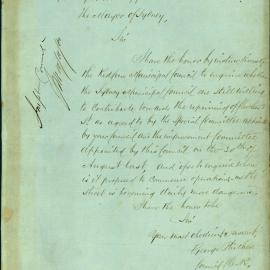 the Mayor of Sydney
Sir
I have the honor by instructions of
the Redfern Municipal Council to inquire whether
the Sydney Municipal Council are still willing
to contribute towards the repairing of
St. as agreed to by the Special Committee appointed
by your Council and the improvement Committee
appointed by this Council on the 20th of
August last, and if so to inquire when
is it prepared to commence operations as the
Street is becoming daily more dangerous
I have the honor to be
Sir
Your most obedient servant
George
Council Clerk